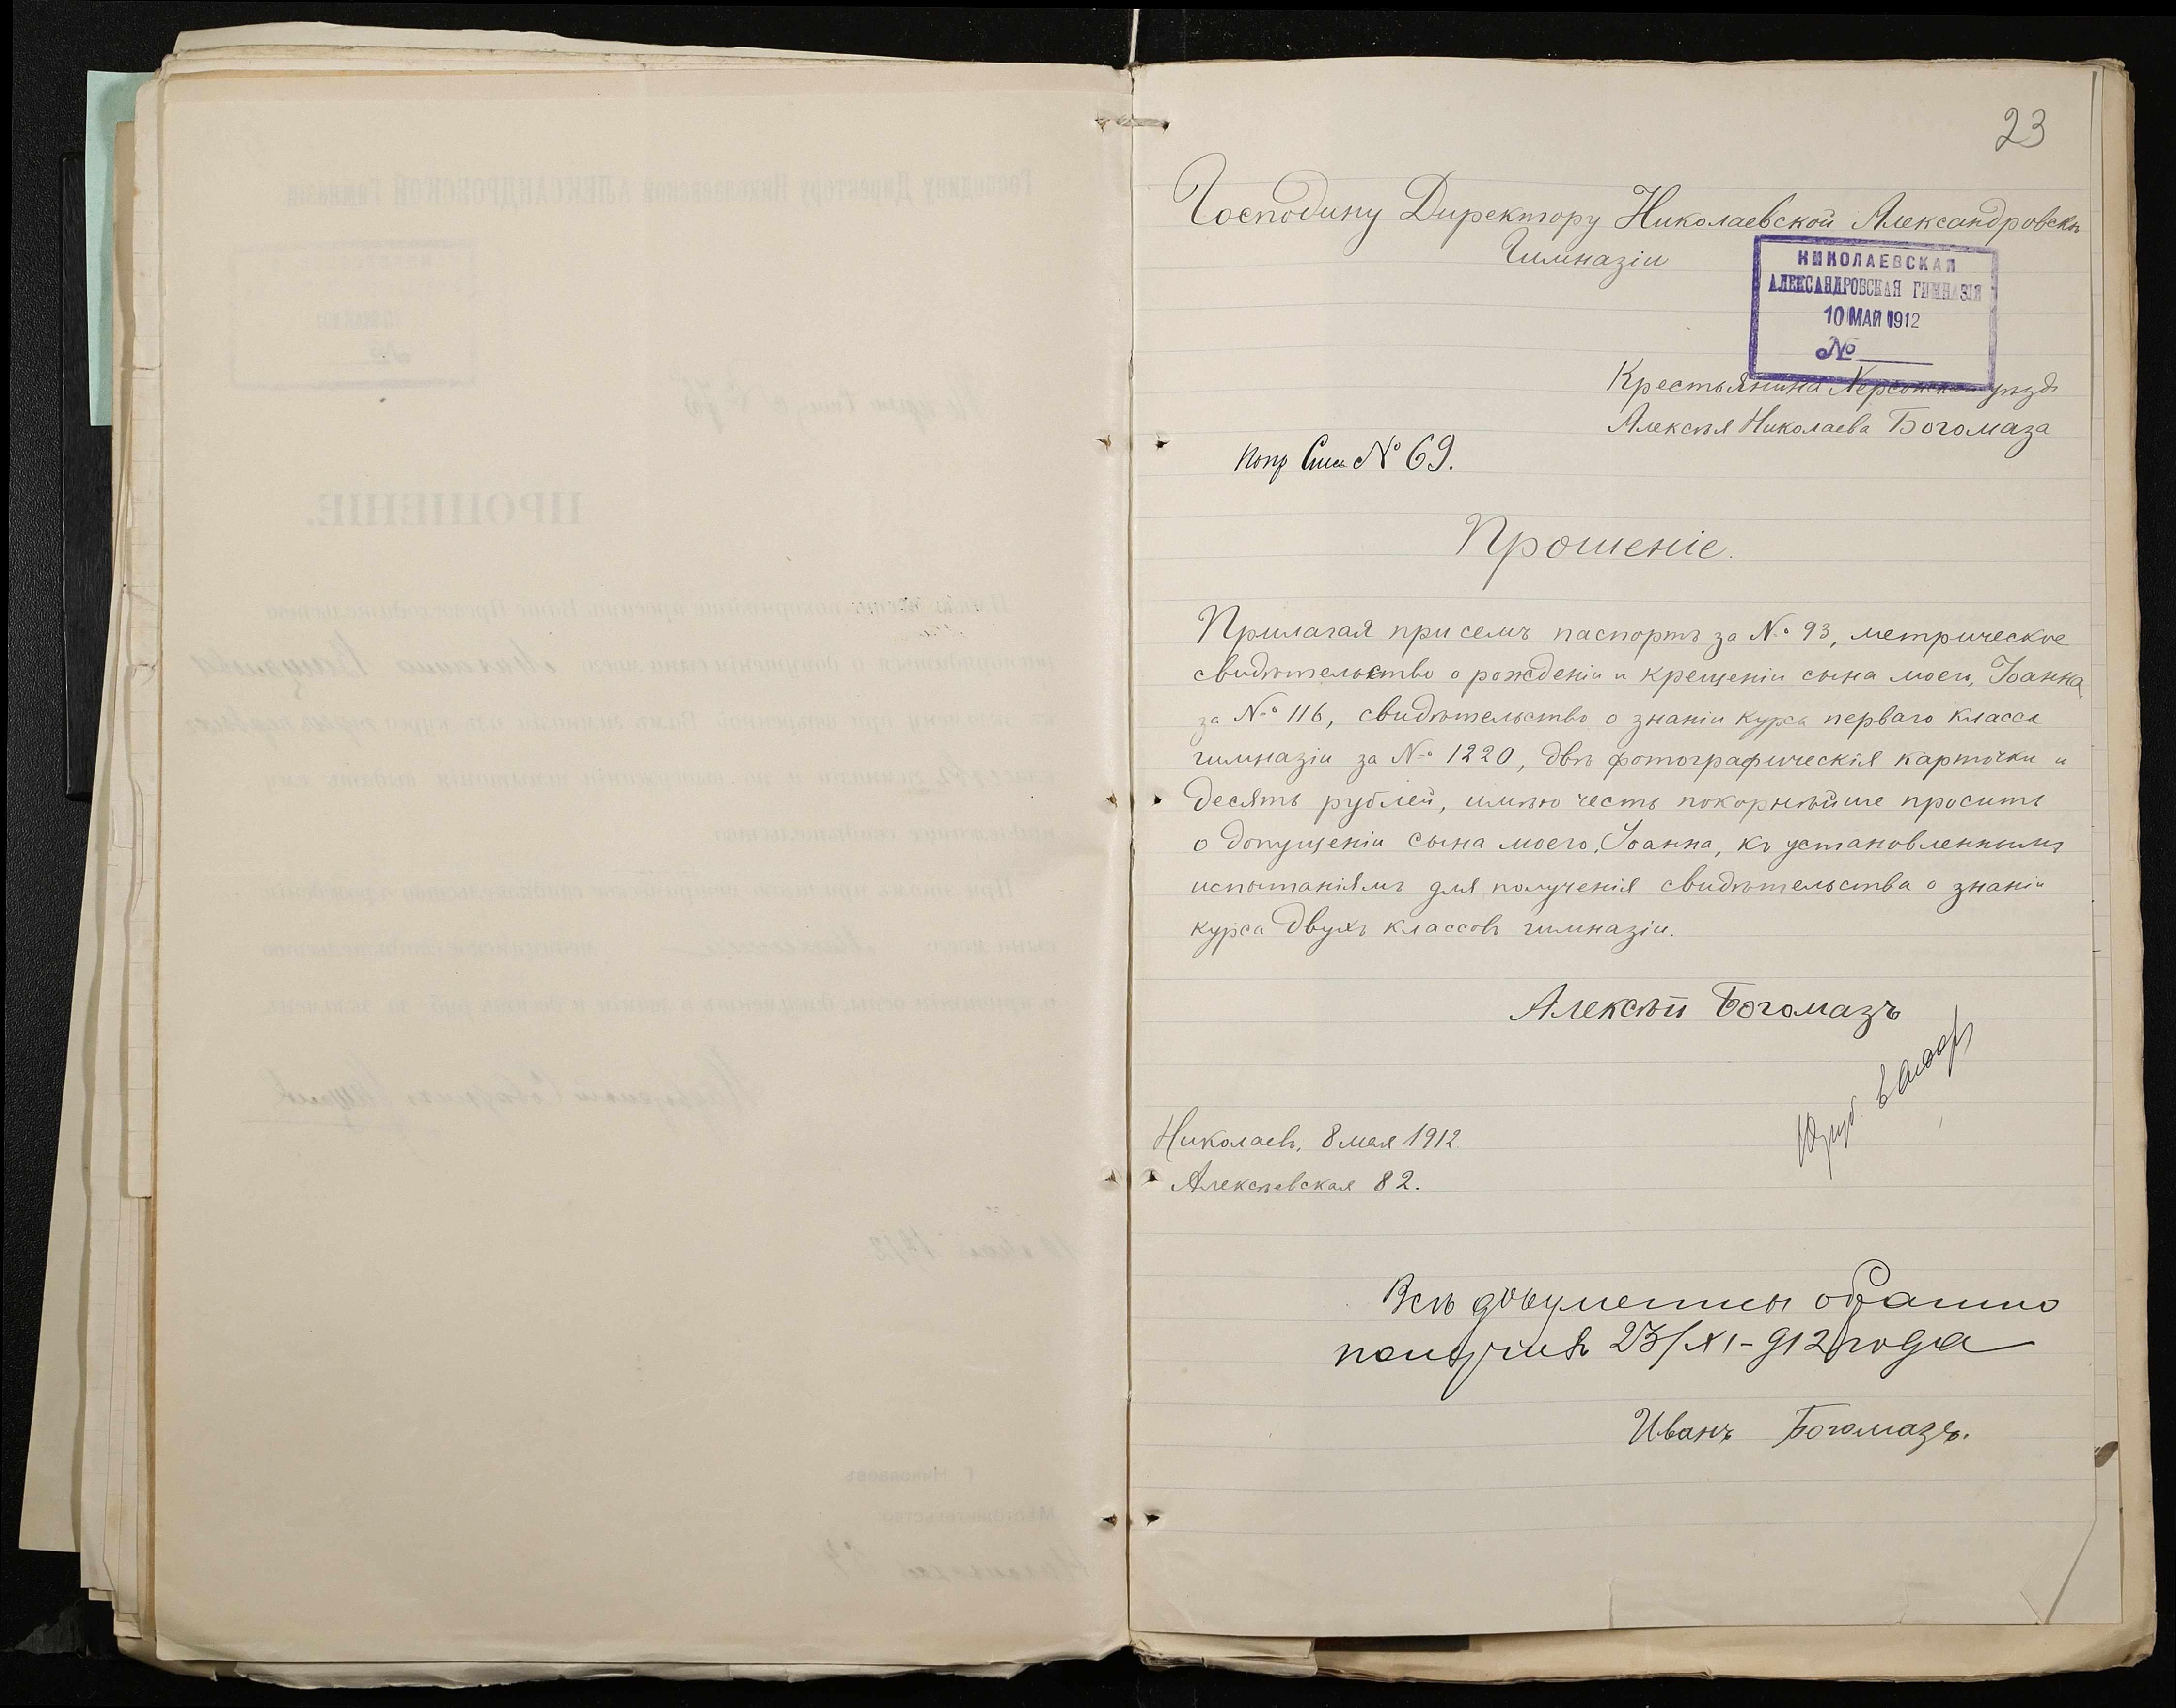 23
Господину Директору Николаевской Александровск
Гимназіи
НИКОЛАЕВСКАЯ
АЛЕКСАНДРОВСКАЯ ГИМНАЗІЯ
10 МАЯ 1912
№
Крестьянина Херсонскаго уѣзда
Алексѣя Николаева Богомаза
№ 69.
Прошеніе.
Прилагая при семъ паспортъ за № 93, метрическое
свидѣтельство о рожденіи и крещеніи сына моего, Іоанна,
за № 116, свидѣтельство о знаніи курса перваго класса
гимназіи за № 1220, двѣ фотографическія карточки и
десять рублей, имѣю честь покорнѣйше просить
о допущеніи сына моего, Іоанна, къ установленнымъ
испытаніямъ для полученія свидѣтельства о знаніи
курса двухъ классовъ гимназіи.
Алексѣй Богомазъ
Николаевъ, 8 мая 1912.
Алексѣевская 82.
Всѣ документы обратно
получилъ 23/XI-912 года
Иванъ Богомазъ.